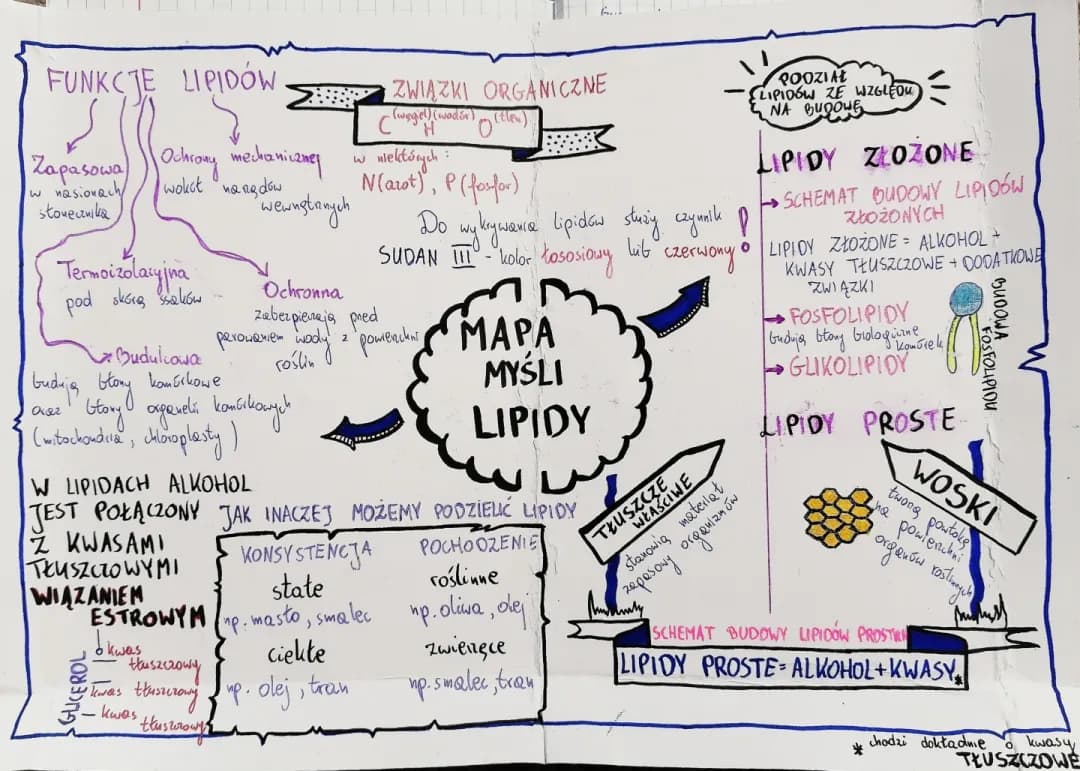 FUNKCJE LIPIDÓW
Zapasowa
w nasionach
słonecznika
Ochrony mechanicznej
wokół narządów
wewnętrznych
Termoizolacyjna
pod skórą ssaków
Ochronna
zabezpieczają przed
parowaniem wody z powierzchni
roślin
Budulcowa
budują błony komórkowe
oraz błony organelli komórkowych
(mitochondria, chloroplasty)
ZWIĄZKI ORGANICZNE
C (węgel) H (wodór) O (tlen)
w niektórych:
N(azot), P(fosfor)
Do wykrywania lipidów służy czynnik
SUDAN III - kolor łososiowy lub czerwony!
MAPA
MYŚLI
LIPIDY
PODZIAŁ
LIPIDÓW ZE WZGLĘDU
NA BUDOWĘ
LIPIDY ZŁOŻONE
→ SCHEMAT BUDOWY LIPIDÓW
ZŁOŻONYCH
LIPIDY ZŁOŻONE = ALKOHOL +
KWASY TŁUSZCZOWE + DODATKOWE
ZWIĄZKI
→ FOSFOLIPIDY
budują błony biologiczne
komórek
→ GLIKOLIPIDY
BUDOWA
FOSFOLIPIDU
LIPIDY PROSTE
TŁUSZCZE
WŁAŚCIWE
stanowią materiał
zapasowy organizmów
WOSKI
tworzą powłokę
na powierzchni
organów roślinnych
SCHEMAT BUDOWY LIPIDÓW PROSTYCH
LIPIDY PROSTE = ALKOHOL + KWASY*
* chodzi dokładnie o kwasy
TŁUSZCZOWE
W LIPIDACH ALKOHOL
JEST POŁĄCZONY
Z KWASAMI
TŁUSZCZOWYMI
WIĄZANIEM
ESTROWYM
GLICEROL
kwas
tłuszczowy
kwas tłuszczowy
kwas
tłuszczowy
JAK INACZEJ MOŻEMY PODZIELIĆ LIPIDY
KONSYSTENCJA
stałe
np. masło, smalec
ciekłe
np. olej, tran
POCHODZENIE
roślinne
np. oliwa, olej
zwierzęce
np. smalec, tran